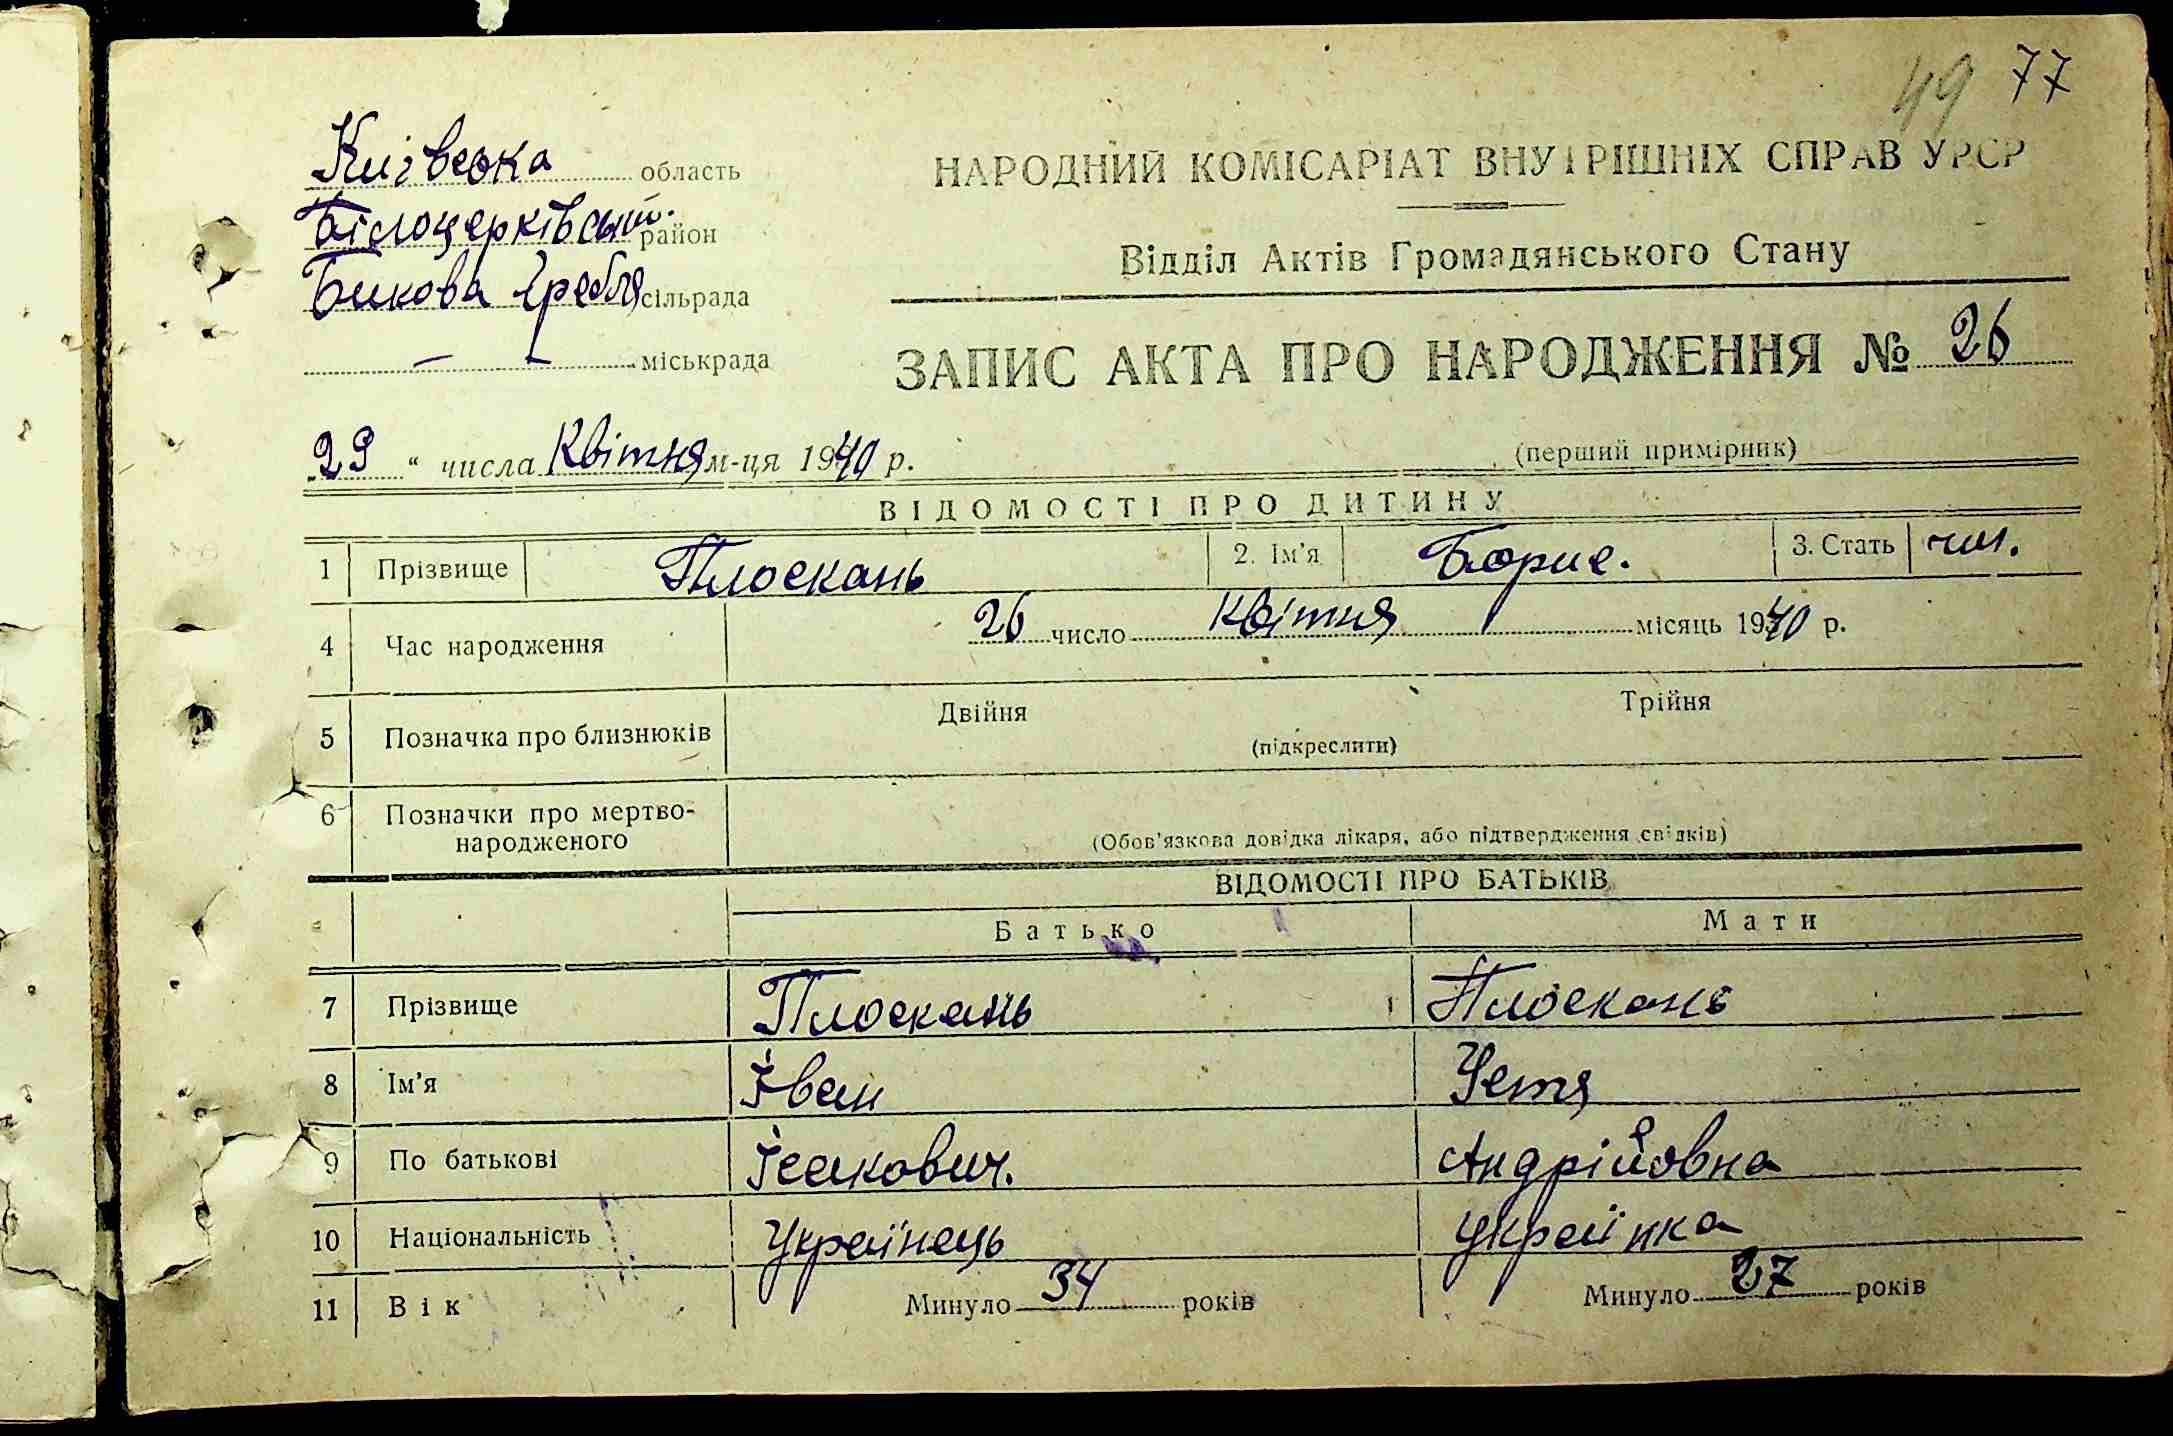 49 77
Київська область
НАРОДНИЙ КОМІСАРІАТ ВНУТРІШНІХ СПРАВ УРСР
Білоцерківський. район
Відділ Актів Громадянського Стану
Бикова Гребля сільрада
— міськрада
ЗАПИС АКТА ПРО НАРОДЖЕННЯ № 26
„29 “ числа Квітня м-ця 1940 р.
(перший примірник)
ВІДОМОСТІ ПРО ДИТИНУ
1 Прізвище Плоскань 2. Ім'я Борис. 3. Стать чол.
4 Час народження 26 число квітня місяць 1940 р.
5 Позначка про близнюків Двійня Трійня
(підкреслити)
6 Позначки про мертво-
народженого
(Обов'язкова довідка лікаря, або підтвердження свідків)
ВІДОМОСТІ ПРО БАТЬКІВ
Батько Мати
7 Прізвище Плоскань Плоскань
8 Ім'я Іван Устя
9 По батькові Ісакович. Андрійовна
10 Національність Українець Українка
11 Вік Минуло 34 років Минуло 27 років